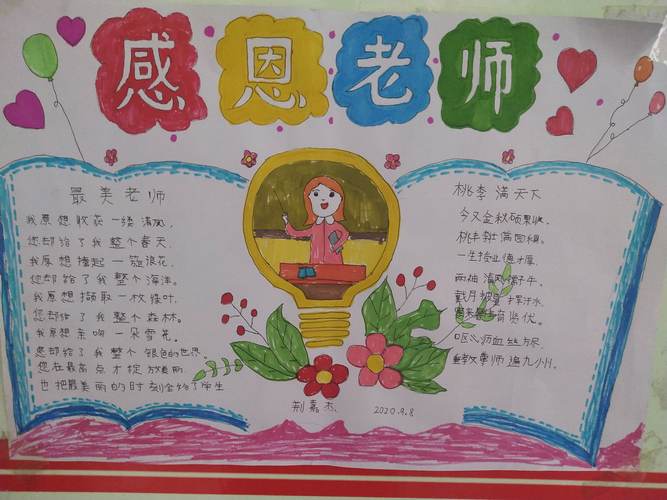 感恩老师
最美老师
我原想收获一缕清风,
您却给了我整个春天.
我原想撸起一筵浪花,
您却给了我整个海洋.
我原想撷取一枚绿叶.
您却给了我整个森林.
我原想亲吻一朵雪花,
您却给了我整个银色的世界.
您在最高点才绽放美丽
也把最美丽的时刻全给了学生
桃李满天下
今又金秋硕果收,
桃李
一生授业德才厚.
两袖清风
戴月披星挥汗水,
有贤优.
呕心
师遍九小州.
荆嘉杰
2020.9.8